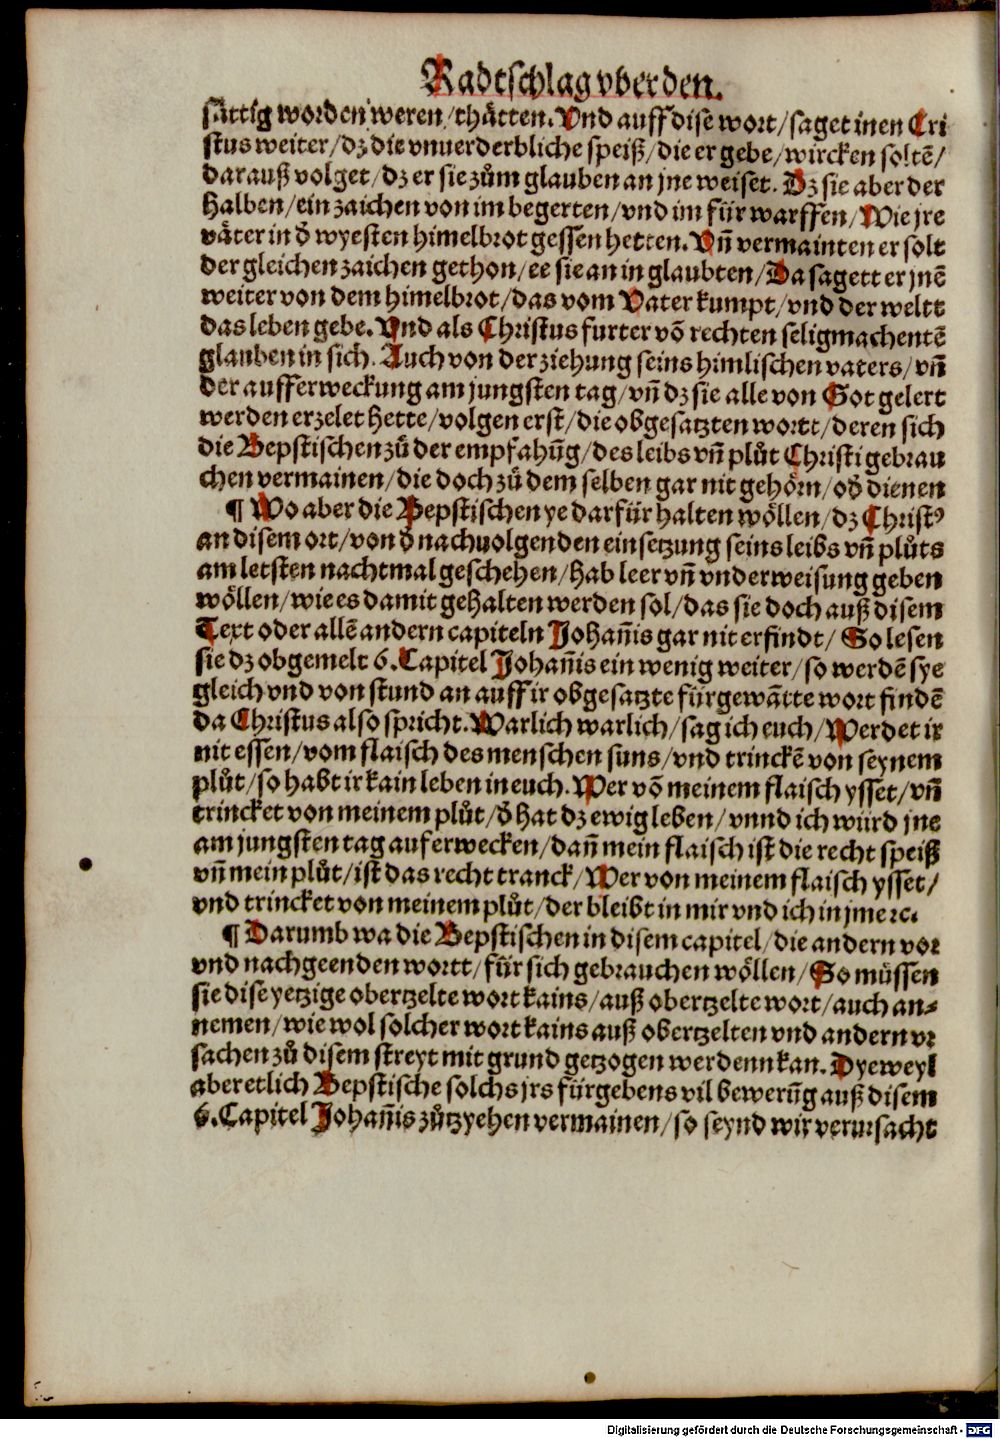 Radtschlag vber den.
såttig worden weren / thåtten. Vnd auff dise wort / saget inen Cri
stus weiter / dz die vnuerderbliche speiß / die er gebe / wircken soltē /
darauß volget / dz er sie zům glauben an jne weiset. Dz sie aber der
halben / ein zaichen von im begerten / vnd im für warffen / Wie jre
våter in d̄ wyesten himelbrot gessen hetten. Vn̄ vermainten er solt
der gleichen zaichen gethon / ee sie an in glaubten / Da sagett er jnē
weiter von dem himelbrot / das vom Vater kumpt / vnd der weltt
das leben gebe. Vnd als Christus furter vō rechten seligmachentē
glauben in sich. Auch von der ziehung seins himlischen vaters / vn̄
der aufferweckung am jungsten tag / vn̄ dz sie alle von Got gelert
werden erzelet hette / volgen erst / die obgesatzten wortt / deren sich
die Bepstischen zů der empfahūg / des leibs vn̄ plůt Christi gebrau
chen vermainen / die doch zů dem selben gar nit gehörn / od̄ dienen
¶ Wo aber die Bepstischen ye darfür halten wöllen / dz Christꝰ
an disem ort / von d̄ nachuolgenden einsetzung seins leibs vn̄ plůts
am letsten nachtmal geschehen / hab leer vn̄ vnderweisung geben
wöllen / wie es damit gehalten werden sol / das sie doch auß disem
Text oder allē andern capiteln Johan̄is gar nit erfindt / So lesen
sie dz obgemelt 6. Capitel Johan̄is ein wenig weiter / so werdē sye
gleich vnd von stund an auff ir obgesatzte fürgewātte wort findē
da Christus also spricht. Warlich warlich / sag ich euch / Werdet ir
nit essen / vom flaisch des menschen suns / vnd trinckē von seynem
plůt / so habt ir kain leben in euch. Wer vō meinem flaisch ysset / vn̄
trincket von meinem plůt / d̄ hat dz ewig leben / vnnd ich würd jne
am jungsten tag auferwecken / dan̄ mein flaisch ist die recht speiß
vn̄ mein plůt / ist das recht tranck / Wer von meinem flaisch ysset /
vnd trincket von meinem plůt / der bleibt in mir vnd ich in jme ꝛc.
¶ Darumb wa die Bepstischen in disem capitel / die andern vor
vnd nachgeenden wortt / für sich gebrauchen wöllen / So müssen
sie dise yetzige obertzelte wort kains / auß obertzelte wort / auch an⸗
nemen / wie wol solcher wort kains auß obertzelten vnd andern vr
sachen zů disem streyt mit grund getzogen werdenn kan. Dyeweyl
aber etlich Bepstische solchs jrs fürgebens vil bewerūg auß disem
6. Capitel Johan̄is zůtzyehen vermainen / so seynd wir verursacht
Digitalisierung gefördert durch die Deutsche Forschungsgemeinschaft - DFG